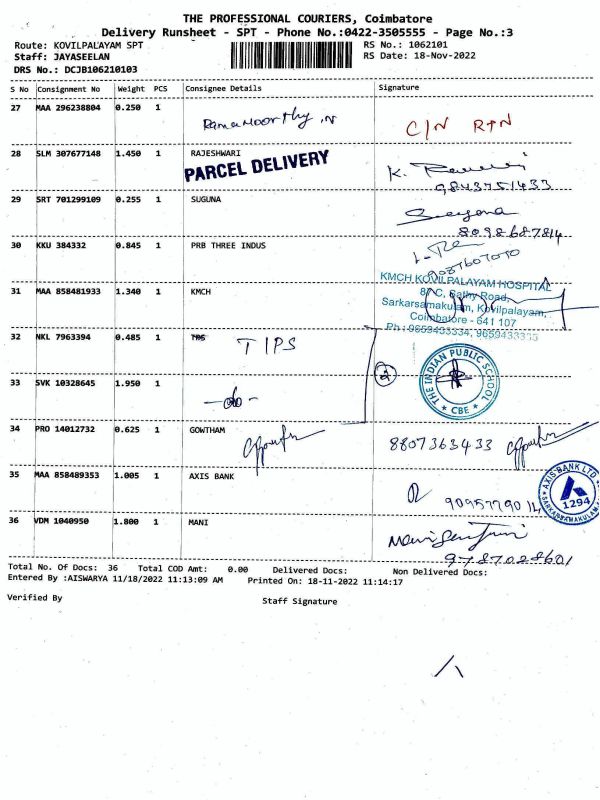 THE PROFESSIONAL COURIERS, Coimbatore
Delivery Runsheet - SPT - Phone No.:0422-3505555 - Page No.:3
Route: KOVILPALAYAM SPT
RS No.: 1062101
Staff: JAYASEELAN
RS Date: 18-Nov-2022
DRS No.: DCJB106210103
S No Consignment No Weight PCS Consignee Details Signature
27 MAA 296238804 0.250 1 Ramamoorthy .N C/N RTN
28 SLM 307677148 1.450 1 RAJESHWARI
PARCEL DELIVERY
9843751433
29 SRT 701299109 0.255 1 SUGUNA
8098687814
30 KKU 384332 0.845 1 PRB THREE INDUS
9087607070
KMCH KOVILPALAYAM HOSPITAL
31 MAA 858481933 1.340 1 KMCH
87C, Sathy Road,
Sarkarsamakulam, Kovilpalayam,
Coimbatore - 641 107
Ph : 9659433334, 9659433335
32 NKL 7963394 0.485 1 TIPS
THE INDIAN PUBLIC SCHOOL
CBE
2
33 SVK 10328645 1.950 1 -do-
34 PRO 14012732 0.625 1 GOWTHAM 8807363433
35 MAA 858489353 1.005 1 AXIS BANK
AXIS BANK LTD
1294
SARKARSAMAKULAM
36 VDM 1040950 1.800 1 MANI
9787028601
Total No. Of Docs: 36 Total COD Amt: 0.00 Delivered Docs: Non Delivered Docs:
Entered By :AISWARYA 11/18/2022 11:13:09 AM Printed On: 18-11-2022 11:14:17
Verified By Staff Signature